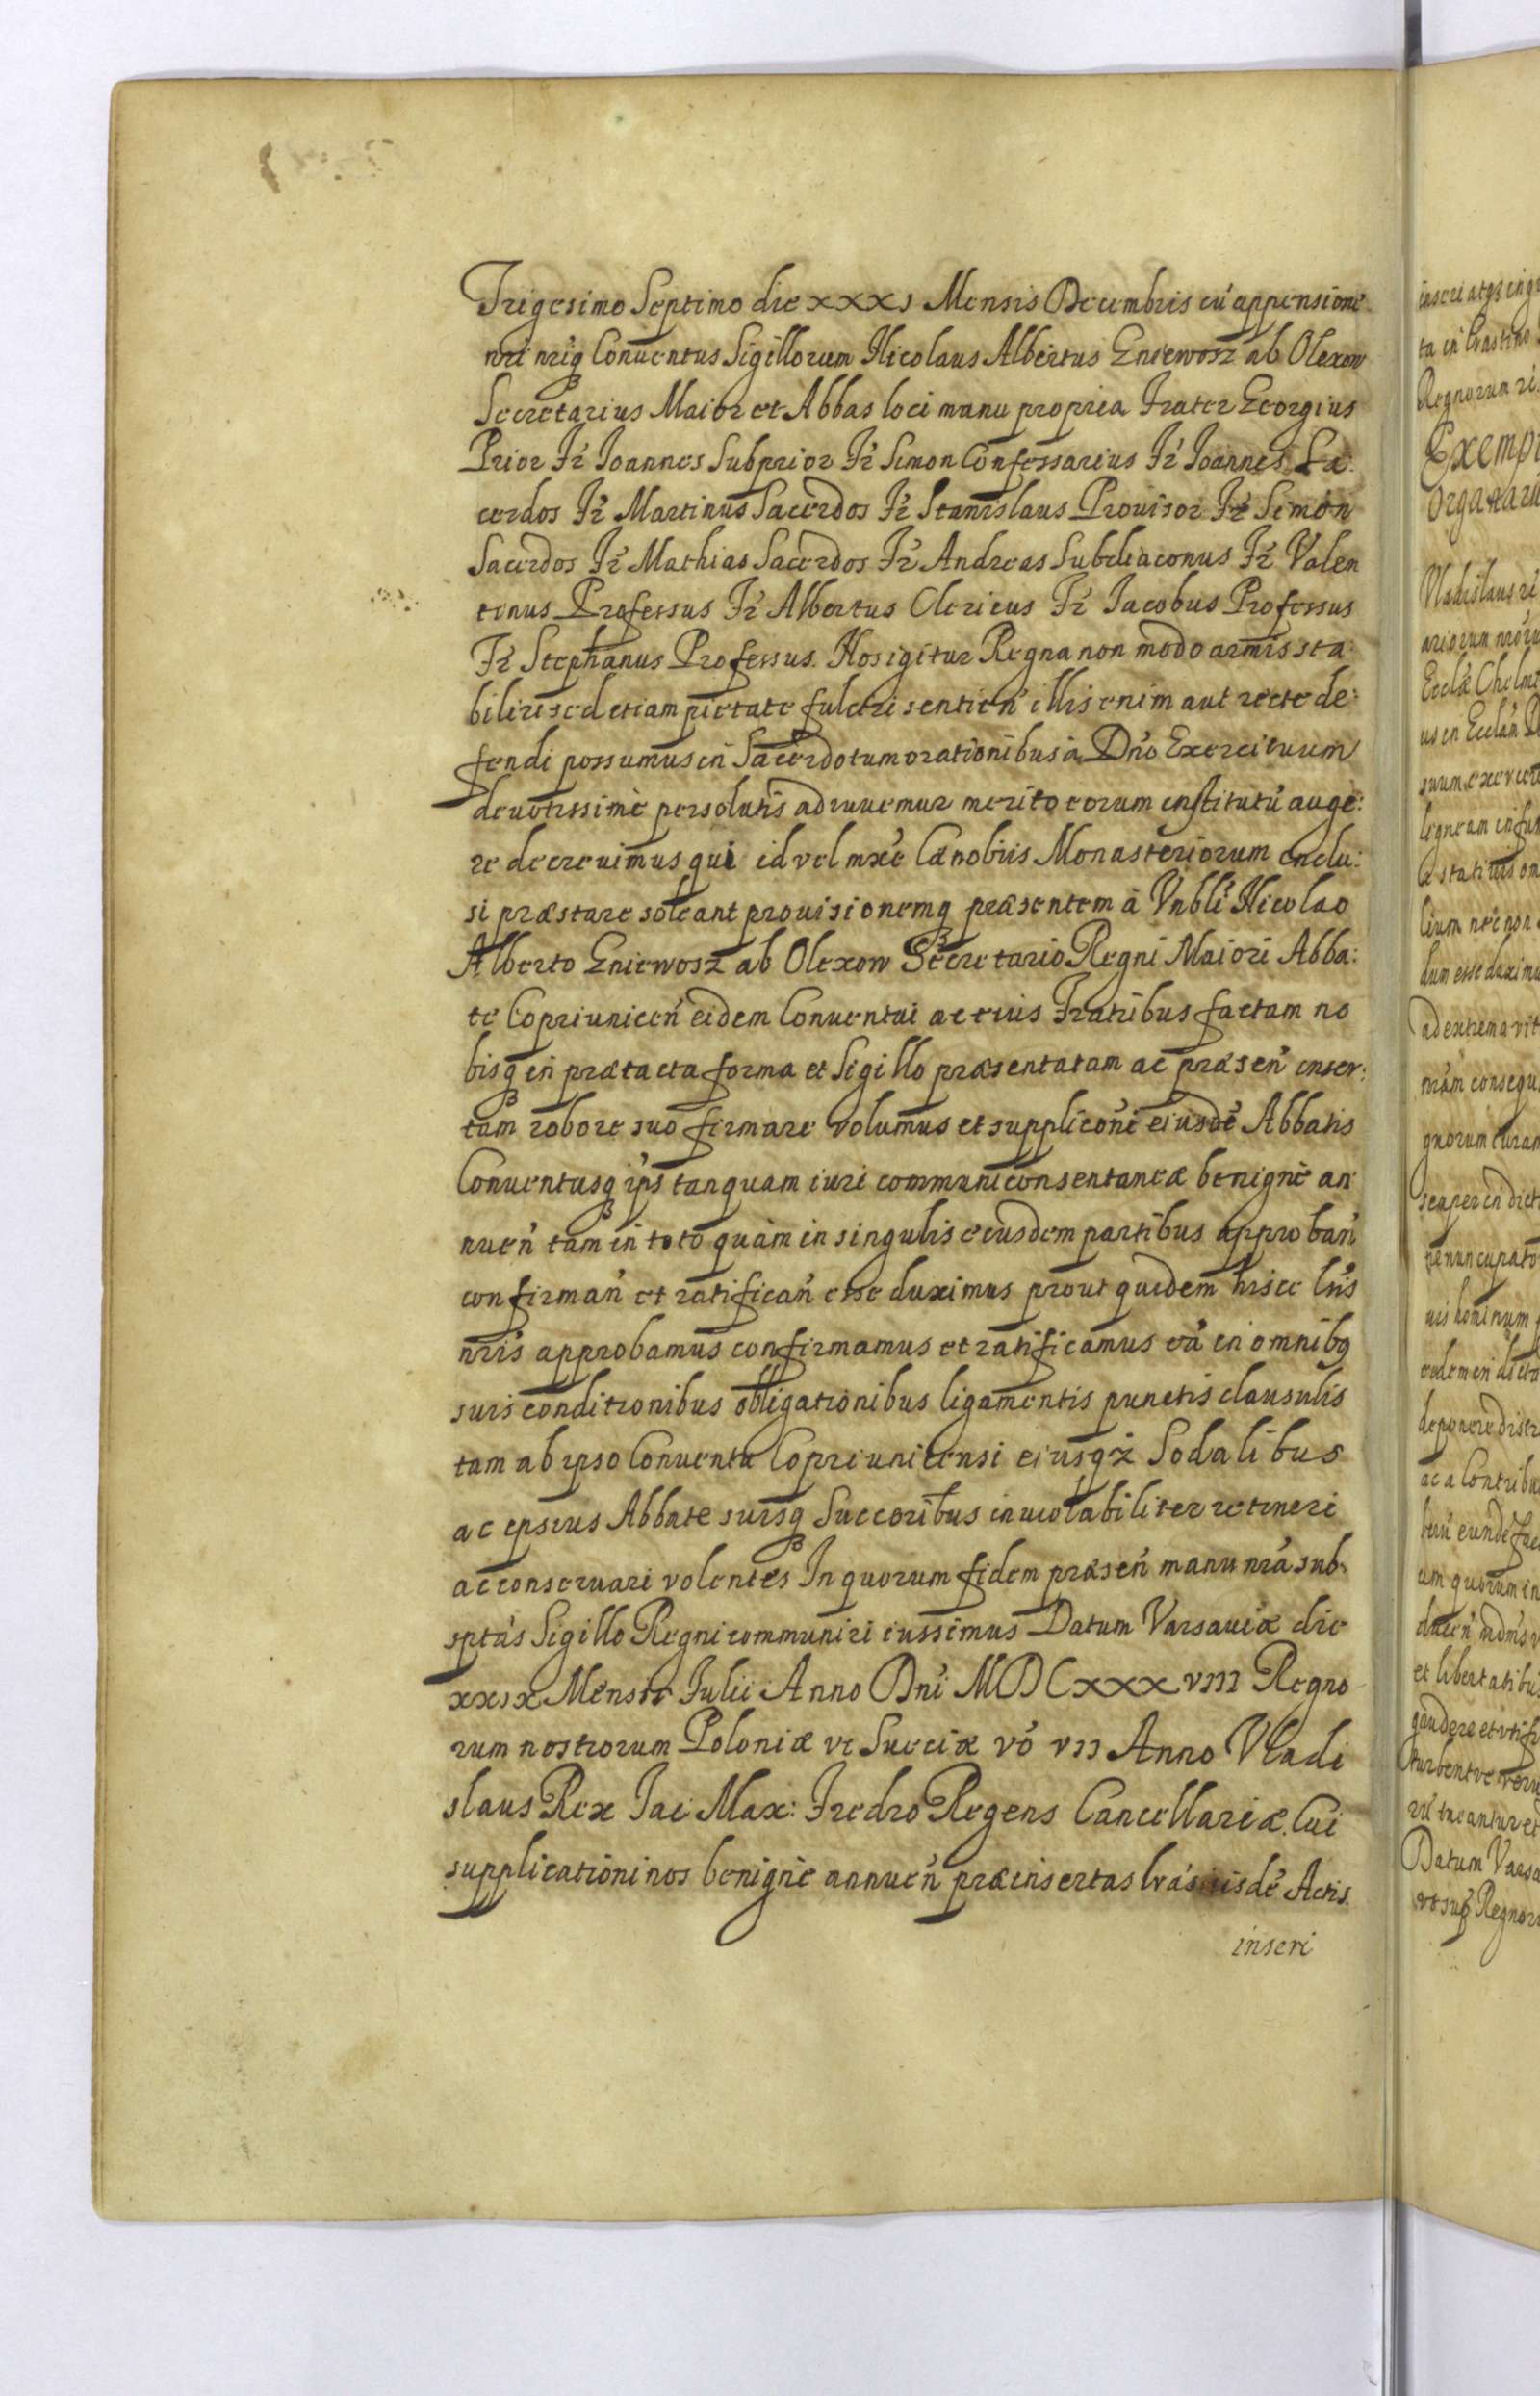 Trigesimo Septimo die xxxj Mensis Decembris cū appensione
nri nriq Conventus Sigillorum Nicolaus Albertus Gniewosz ab Olexow
Secretarius Maior et Abbas loci manu propria Frater Georgius
Prior Fr Joannes Subprior Fr Simon Confessarius Fr Joannes Sa:
cerdos Fr Martinus Sacerdos Fr Stanislaus Prouisor Fr Simon
Sacerdos Fr Mathias Sacerdos Fr Andreas Subdiaconus Fr Valen
tinus Professus Fr Albertus Clericus Fr Iacobus Professus
Fr Stephanus Professus. Nos igitur Regna non modo armis sta:
biliri sed etiam pietate fulciri sentien illis enim aut recte de:
fendi possumus in Sacerdotum orationibus à Dno Exercituum
deuotissimè persolutis adiuuemur merito eorum institutū auge:
re decreuimus qui id vel mxe Cænobiis Monasteriorum inclu:
si præstare soleant prouisionemq præsentem à Vnbli Nicolao
Alberto Gniewosz ab Olexow Secretario Regni Maiori Abba:
te Copriunicen eidem Conuentui ac eius Fratribus factam no
bisq in prætacta forma et Sigillo præsentatam ac præsen inser:
tam robore suo firmare volumus et supplicōne eiusdē Abbatis
Conuentusq ips tanquam iuri communi consentaneæ benignè an
nuen tam in toto quàm in singulis eiusdem partibus approban
confirman et ratifican esse duximus prout quidem hisce lris
nris approbamus confirmamus et ratificamus eā in omnibq
suis conditionibus obligationibus ligamentis punctis clausulis
tam ab ipso Conuentu Copriunicensi eiusqz Sodalibus
ac ipsius Abbate suisq Succoribus inuiolabiliter retineri
ac conseruari volentes In quorum fidem præsen manu nra sub:
sptas Sigillo Regni communiri iussimus Datum Varsauiæ die
xxix Mensis Iulii Anno Dni MDCxxxviii Regno
rum nostrorum Poloniæ vi Sueciæ vō vii Anno Vladi
slaus Rex Iac Max: Fredro Regens Cancellariæ. Cui
supplicationi nos benignè annuen præinsertas lras iisdē Actis
inseri